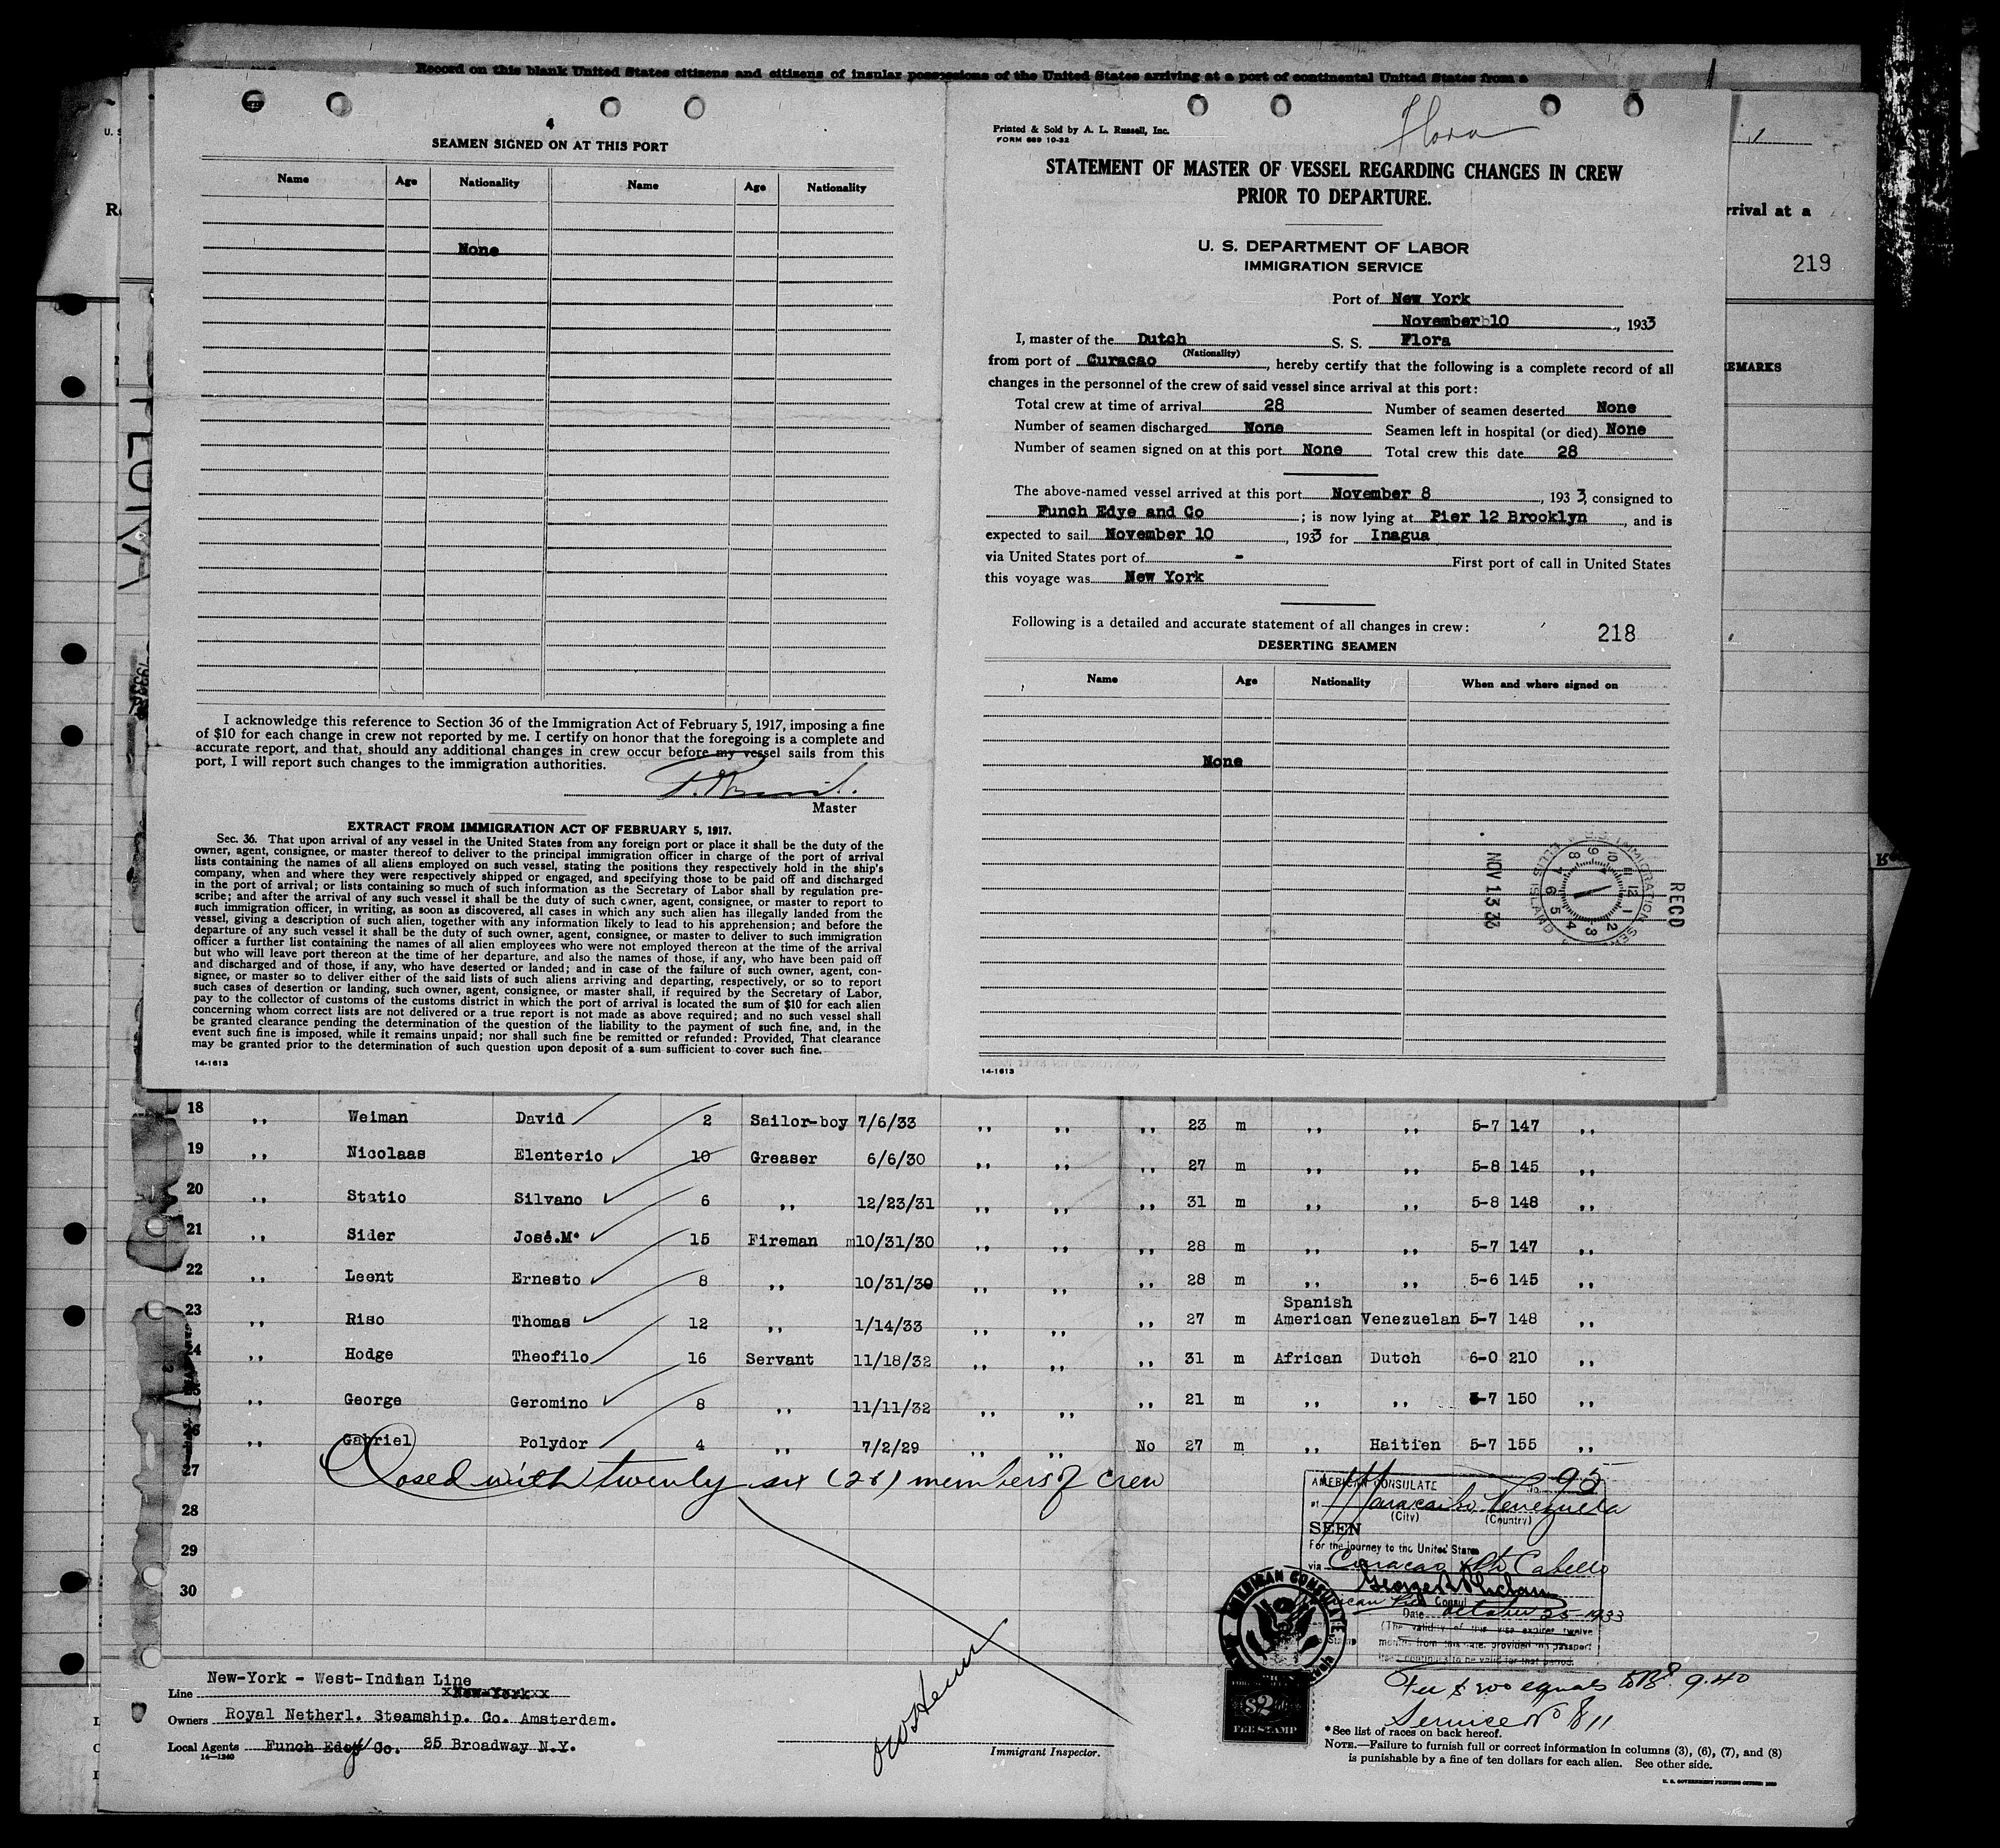 Record on this blank United States citizens and citizens of insular possessions of the United States arriving at a port of continental United States from a
4
SEAMEN SIGNED ON AT THIS PORT
Name Age Nationality Name Age Nationality
None
I acknowledge this reference to Section 36 of the Immigration Act of February 5, 1917, imposing a fine
of $10 for each change in crew not reported by me. I certify on honor that the foregoing is a complete and
accurate report, and that, should any additional changes in crew occur before my vessel sails from this
port, I will report such changes to the immigration authorities.
Master
EXTRACT FROM IMMIGRATION ACT OF FEBRUARY 5, 1917.
Sec. 36. That upon arrival of any vessel in the United States from any foreign port or place it shall be the duty of the
owner, agent, consignee, or master thereof to deliver to the principal immigration officer in charge of the port of arrival
lists containing the names of all aliens employed on such vessel, stating the positions they respectively hold in the ship's
company, when and where they were respectively shipped or engaged, and specifying those to be paid off and discharged
in the port of arrival; or lists containing so much of such information as the Secretary of Labor shall by regulation pre-
scribe; and after the arrival of any such vessel it shall be the duty of such owner, agent, consignee, or master to report to
such immigration officer, in writing, as soon as discovered, all cases in which any such alien has illegally landed from the
vessel, giving a description of such alien, together with any information likely to lead to his apprehension; and before the
departure of any such vessel it shall be the duty of such owner, agent, consignee, or master to deliver to such immigration
officer a further list containing the names of all alien employees who were not employed thereon at the time of the arrival
but who will leave port thereon at the time of her departure, and also the names of those, if any, who have been paid off
and discharged and of those, if any, who have deserted or landed; and in case of the failure of such owner, agent, con-
signee, or master so to deliver either of the said lists of such aliens arriving and departing, respectively, or so to report
such cases of desertion or landing, such owner, agent, consignee, or master shall, if required by the Secretary of Labor,
pay to the collector of customs of the customs district in which the port of arrival is located the sum of $10 for each alien
concerning whom correct lists are not delivered or a true report is not made as above required; and no such vessel shall
be granted clearance pending the determination of the question of the liability to the payment of such fine, and, in the
event such fine is imposed, while it remains unpaid; nor shall such fine be remitted or refunded: Provided, That clearance
may be granted prior to the determination of such question upon deposit of a sum sufficient to cover such fine.
14-1613
Printed & Sold by A. L. Russell, Inc.
FORM 689 10-32
Flora
STATEMENT OF MASTER OF VESSEL REGARDING CHANGES IN CREW
PRIOR TO DEPARTURE.
U. S. DEPARTMENT OF LABOR
IMMIGRATION SERVICE
Port of New York
November 10, 1933
I, master of the Dutch S. S. Flora
(Nationality)
from port of Curacao, hereby certify that the following is a complete record of all
changes in the personnel of the crew of said vessel since arrival at this port:
Total crew at time of arrival 28 Number of seamen deserted None
Number of seamen discharged None Seamen left in hospital (or died) None
Number of seamen signed on at this port None Total crew this date 28
The above-named vessel arrived at this port November 8, 1933, consigned to
Funch Edye and Co; is now lying at Pier 12 Brooklyn, and is
expected to sail November 10, 1933 for Inagua
via United States port of - First port of call in United States
this voyage was New York
Following is a detailed and accurate statement of all changes in crew:
218
DESERTING SEAMEN
Name Age Nationality When and where signed on
None
RECD
NOV 13 33
U.S. IMMIGRATION SERVICE
ELLIS ISLAND
14-1613
rrival at a
219
REMARKS
FLORA
18 ,, Weiman David 2 Sailor-boy 7/6/33 ,, ,, ,, 23 m ,, ,, 5-7 147 ,,
19 ,, Nicolaas Elenterio 10 Greaser 6/6/30 ,, ,, ,, 27 m ,, ,, 5-8 145 ,,
20 ,, Statio Silvano 6 ,, 12/23/31 ,, ,, ,, 31 m ,, ,, 5-8 148 ,,
21 ,, Sider José.M. 15 Fireman 10/31/30 ,, ,, ,, 28 m ,, ,, 5-7 147 ,,
22 ,, Leent Ernesto 8 ,, 10/31/30 ,, ,, ,, 28 m ,, ,, 5-6 145 ,,
23 ,, Riso Thomas 12 ,, 1/14/33 ,, ,, ,, 27 m Spanish American Venezuelan 5-7 148 ,,
24 ,, Hodge Theofilo 16 Servant 11/18/32 ,, ,, ,, 31 m African Dutch 6-0 210 ,,
,, George Geromino 8 ,, 11/11/32 ,, ,, ,, 21 m ,, ,, 5-7 150 ,,
26 ,, Gabriel Polydor 4 ,, 7/2/29 ,, ,, No 27 m ,, Haitien 5-7 155 ,,
27
Closed with twenty six (26) members of crew
28
29
30
AMERICAN CONSULATE No 95
at Maracaibo, Venezuela
(City) (Country)
SEEN
For the journey to the United States
via Curacao & Pto Cabello
Consul
Date October 25-1933
(The validity of this visa expires twelve
months from this date, provided the passport
continues to be valid for that period.
AMERICAN CONSULATE
$2
FEE STAMP
Fee $ 2.00 equals to Bs 9.40
Service No 811
Line New-York - West-Indian Line
Owners Royal Netherl. Steamship. Co. Amsterdam.
Local Agents Funch Edye Co. 25 Broadway N.Y.
14-1240
Immigrant Inspector.
*See list of races on back hereof.
NOTE.—Failure to furnish full or correct information in columns (3), (6), (7), and (8)
is punishable by a fine of ten dollars for each alien. See other side.